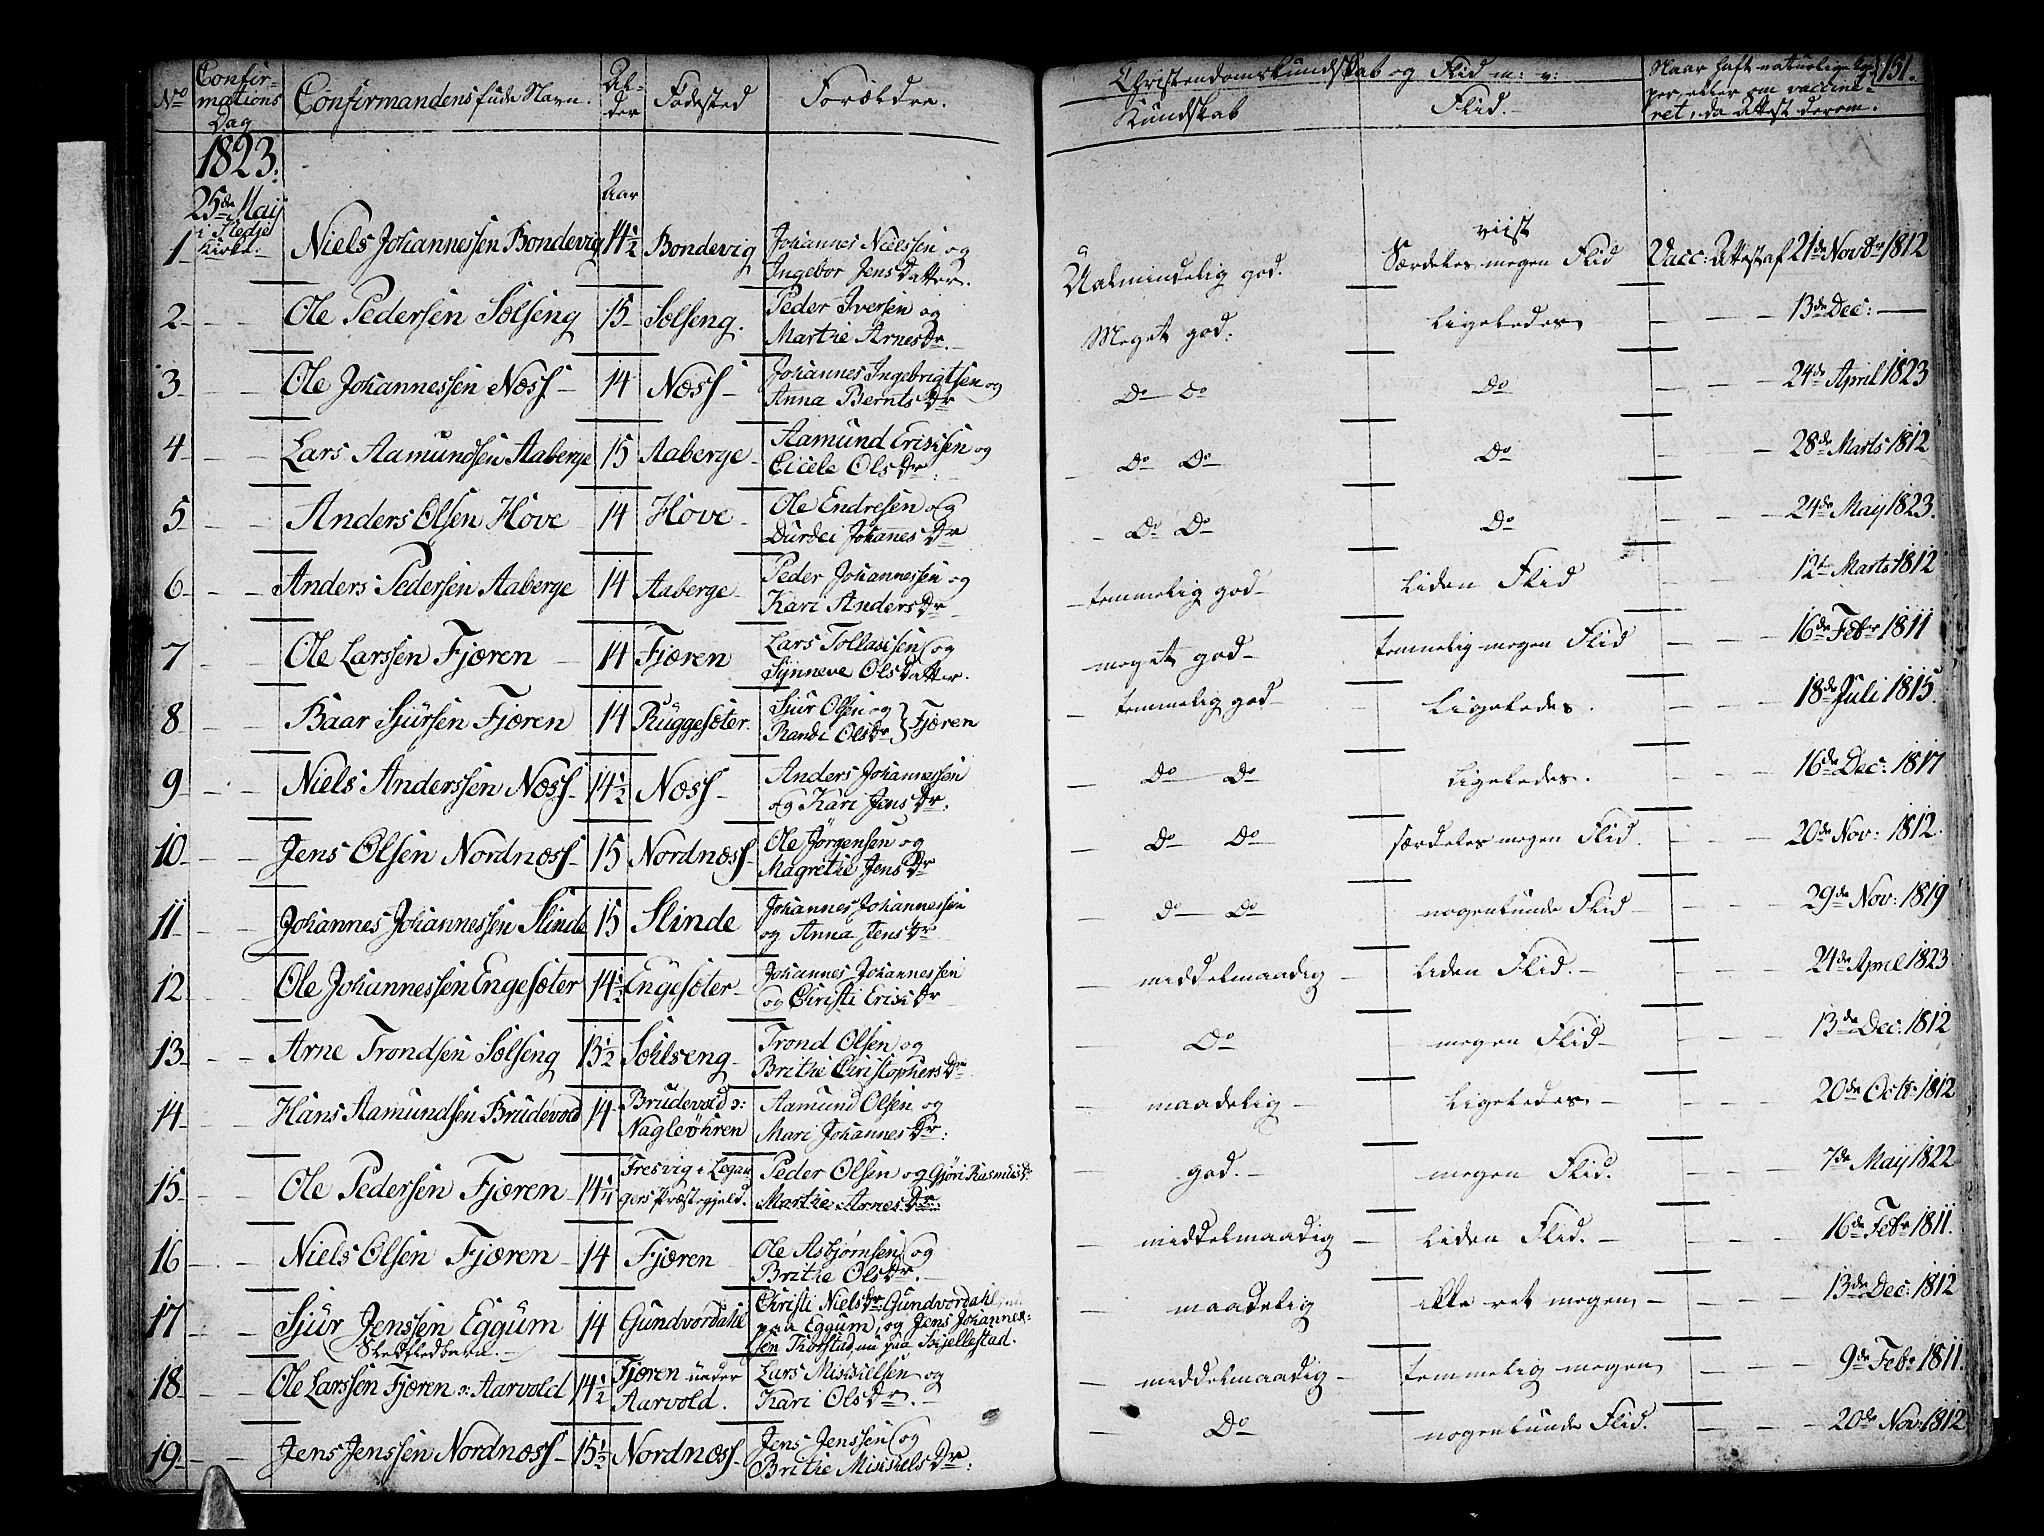 No Confirmations Dag Confirmandens fulde Navn. Alder Fødested Forældre. Christendomskundskab og Flid m: v: Kundskab Flid. Naar haft naturlige kopper eller om vaccineret, da Attest derom. 151.
1823.
25de Maij i Stedje Kirke. Aar
1 Niels Johannessen Bondevig 14½ Bondevig Johannes Nielssen og Ingebor Jens Datter. Ualmindelig god. viist Særdeles megen Flid Vacc: Attest af 21de Novbr 1812
2 Ole Pedersen Sølseng 15 Sølseng. Peder Iversen og Marthe Arnes Dr. Meget god. Ligeledes 13de Dec:
3 Ole Johannessen Næss 14 Næss Johannes Ingebrigtsen og Anna Bernts Dr Do Do Do 24de April 1823
4 Lars Aamundsen Aaberge 15 Aaberge Aamund Ericksen og Cicele Ols Dr Do Do Do 28de Marts 1812
5 Anders Olsen Hove 14 Hove Ole Endresen og Durdei Johanes Dr Do Do Do 24de Maij 1823.
6 Anders Pedersen Aaberge 14 Aaberge Peder Johannessen og Kari Anders Dr temmelig god Liden Flid 12te Marts 1812
7 Ole Larssen Fjæren 14 Fjæren Lars Tollacksen og Synneve Ols Datter. meget god temmelig megen Flid 16de Febr 1811
8 Baar Sjursen Fjæren 14 Ruggesæter. Sjur Olsen og Randi Ols Dr } Fjæren temmelig god Ligeledes. 18de Juli 1815.
9 Niels Anderssen Næss 14½ Næss Anders Johannessen og Kari Jens Dr. Do Do Ligeledes. 16de Dec: 1817
10 Jens Olsen Nordnæss 15 Nordnæss Ole Jørgensen og Magrethe Jens Dr Do Do særdeles megen Flid. 20de Nov: 1812.
11 Johannes Johannessen Slinde 15 Slinde Johannes Johannessen og Anna Jens Dr Do Do nogenlunde Flid 29de Nov: 1819
12 Ole Johannessen Engesæter 14½ Engesæter Johannes Johannessen og Christi Erics Dr middelmaadig Liden Flid. 24de April 1823
13 Arne Trondsen Sølseng 13½ Søhlseng Trond Olsen og Brithe Christophers Dr Do megen Flid 13de Dec: 1812
14 Hans Aamundsen Brudevold 14 Brudevold ɔ: Nagleøhren Aamund Olsen og Mari Johannes Dr: maadelig Ligeledes 20de Octr: 1812
15 Ole Pedersen Fjæren 14¼ Fresvig i Legangers Præstegjeld. Peder Olsen og Gjøri Rasmusdr Marthe Arnes Dr: god. megen Flid. 7de Maij 1822
16 Niels Olsen Fjæren 14 Fjæren Ole Asbjørnsen og Brithe Ols Dr. middelmaadig Liden Flid. 16de Febr 1811.
17 Sjur Jenssen Eggum Slegfredbarn. 14 Gundvordahl Christi Niels Dr Gundvordahl paa Eggum, og Jens Johannessen Thorstad, nu paa Skjellestad. maadelig ikke ret megen 13de Dec: 1812
18 Ole Larssen Fjæren ɔ: Aarvold 14½ Fjæren under Aarvold. Lars Mickelsen og Kari Ols Dr. middelmaadig temmelig megen 9de Febr 1811.
19 Jens Jenssen Nordnæss 15½ Nordnæss Jens Jenssen og Brithe Mickels Dr: Do nogenlunde Flid. 20de Nov: 1812